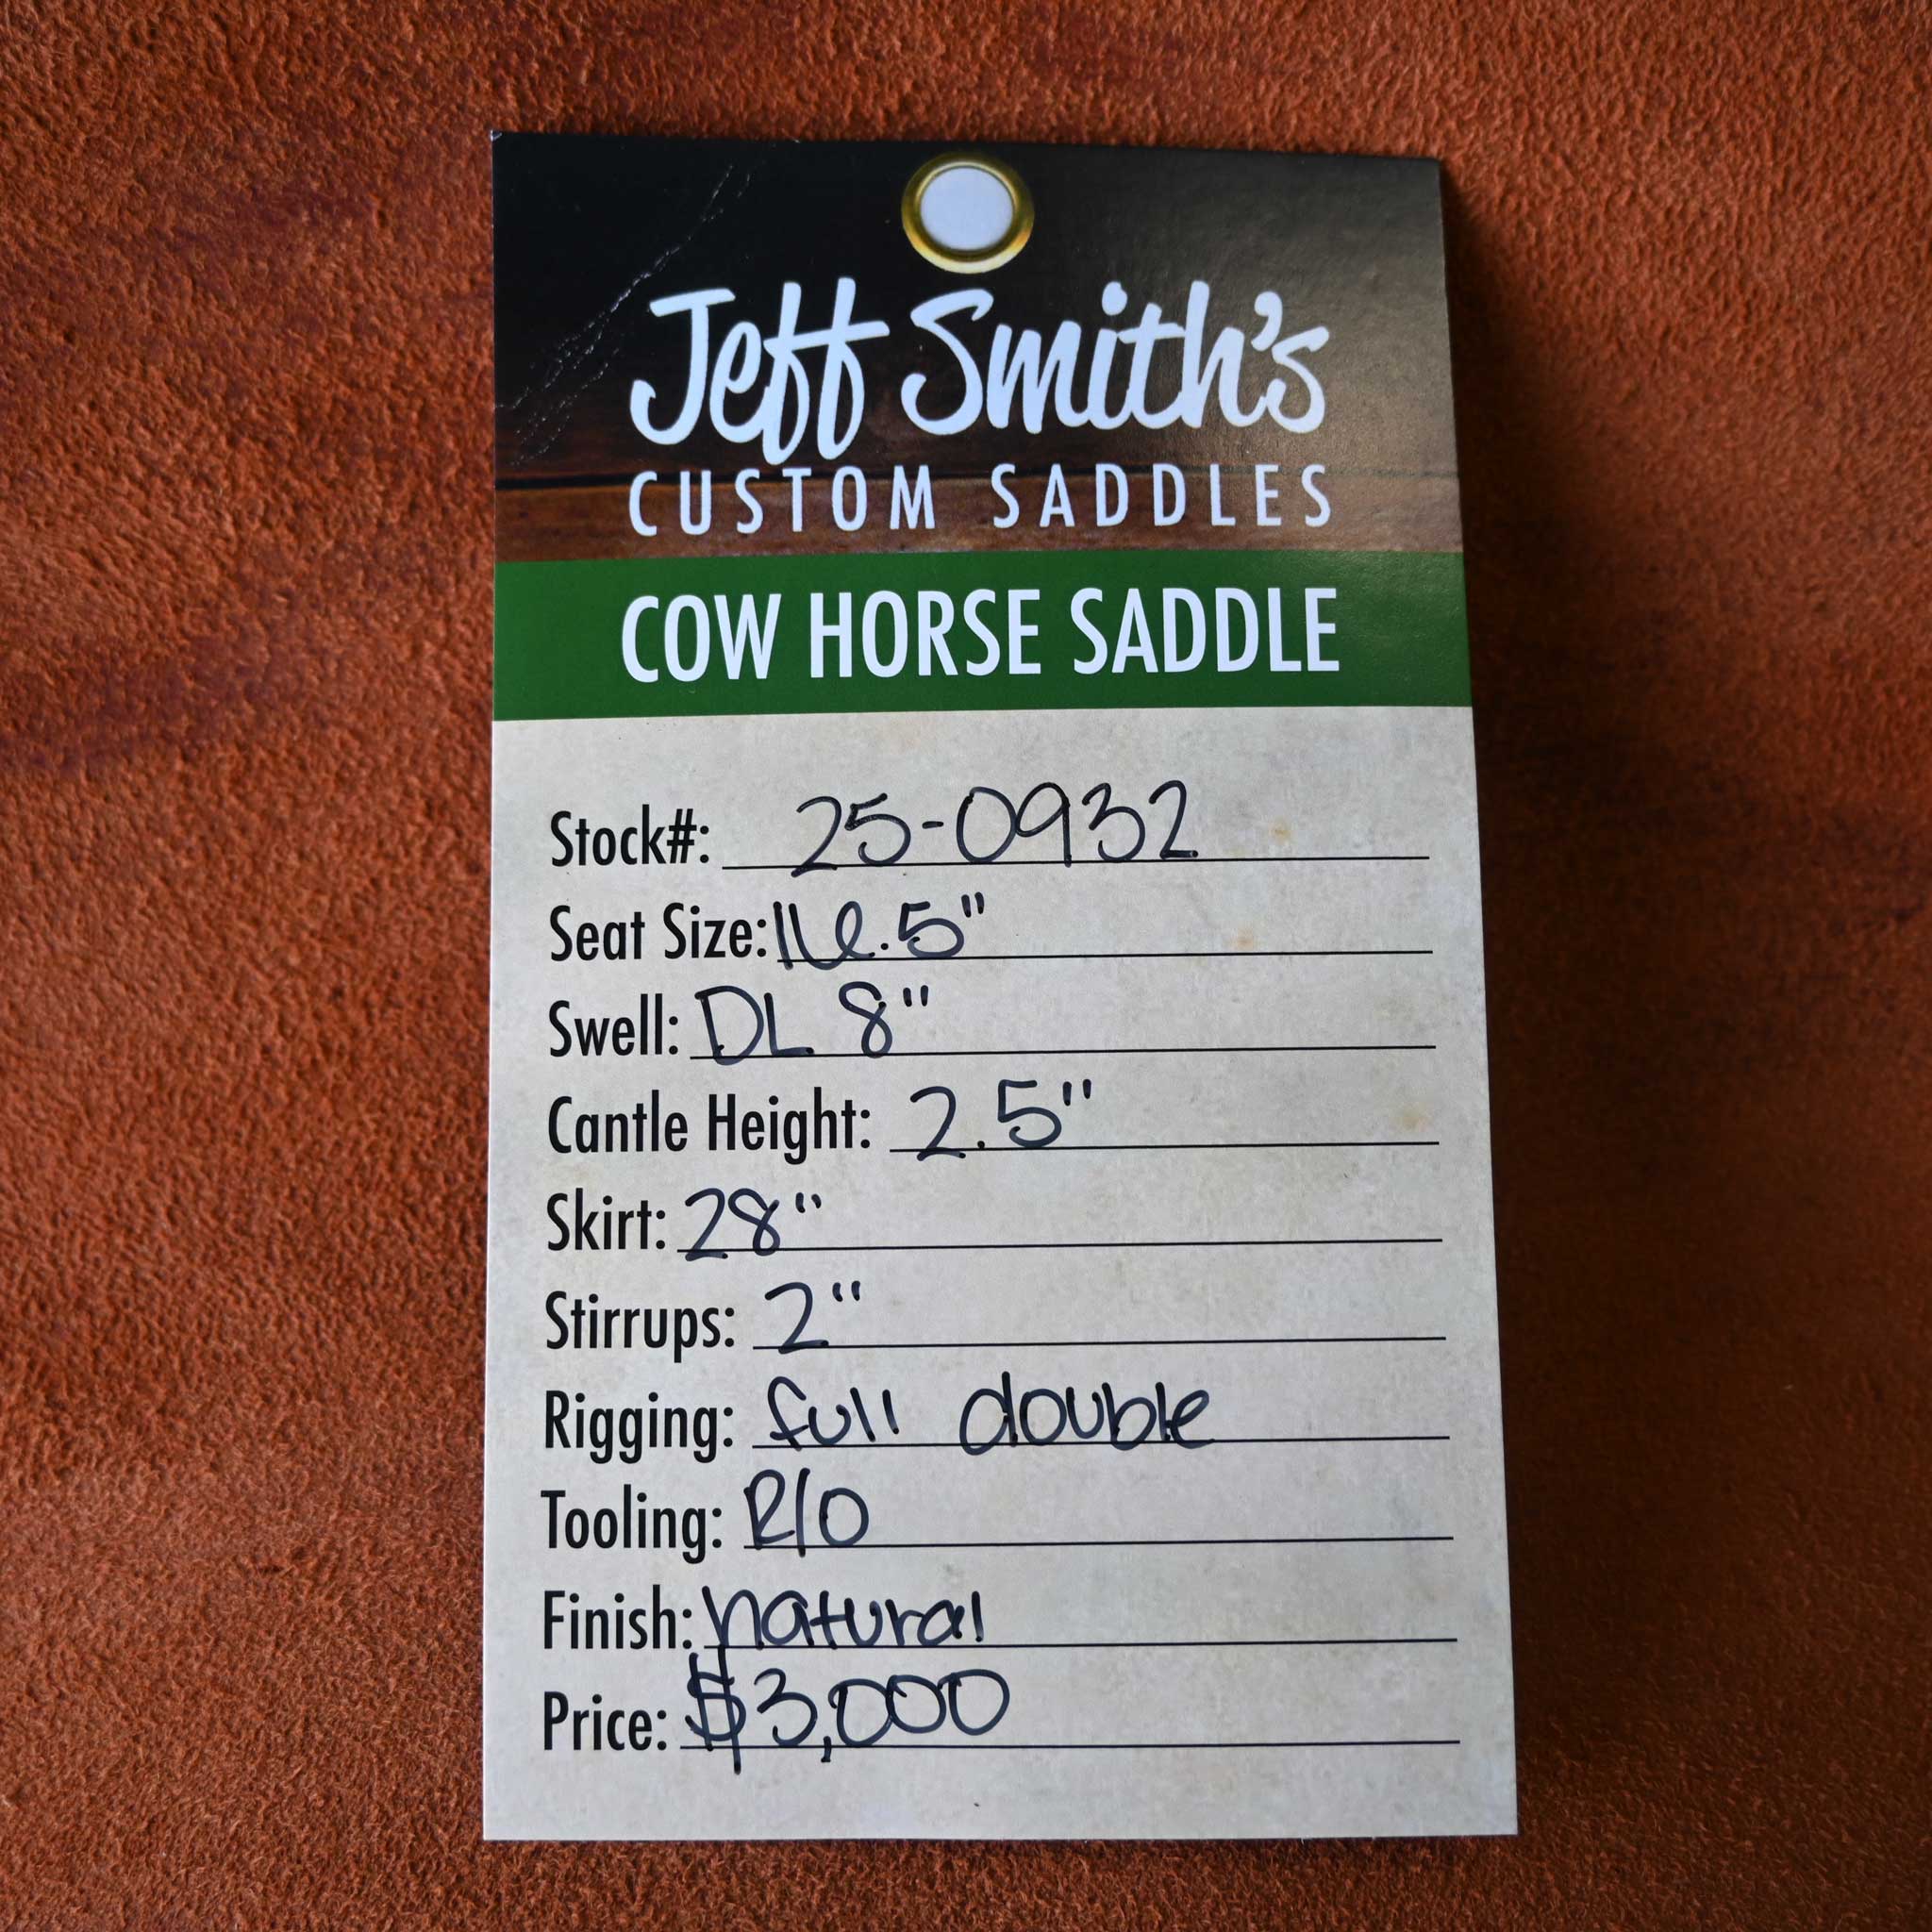 Jeff Smith's
CUSTOM SADDLES
COW HORSE SADDLE
Stock#: 25-0932
Seat Size: 16.5"
Swell: DL 8"
Cantle Height: 2.5"
Skirt: 28"
Stirrups: 2"
Rigging: full double
Tooling: R/O
Finish: natural
Price: $3,000